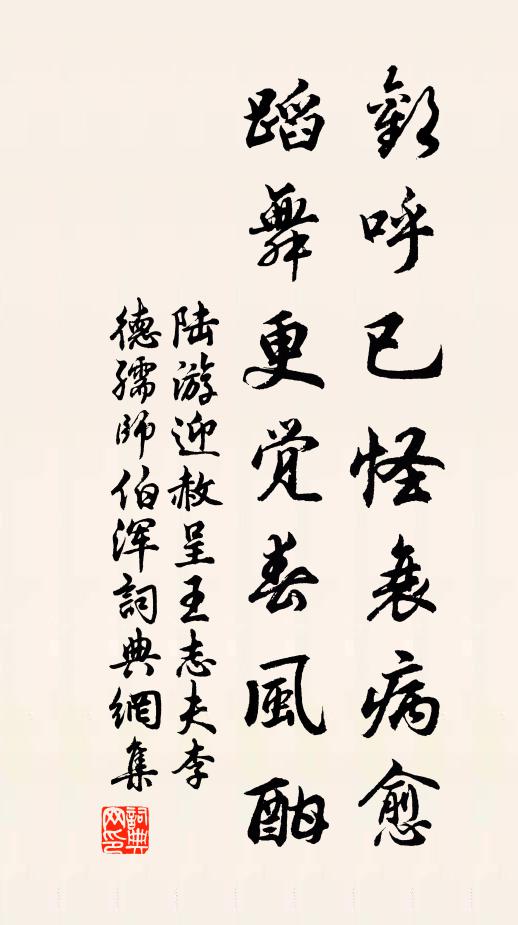 歡呼已怪衰病愈
蹈舞更覚春風酣
陸游迎赦呈王志夫李
德孺師伯渾詞典網集
詞典